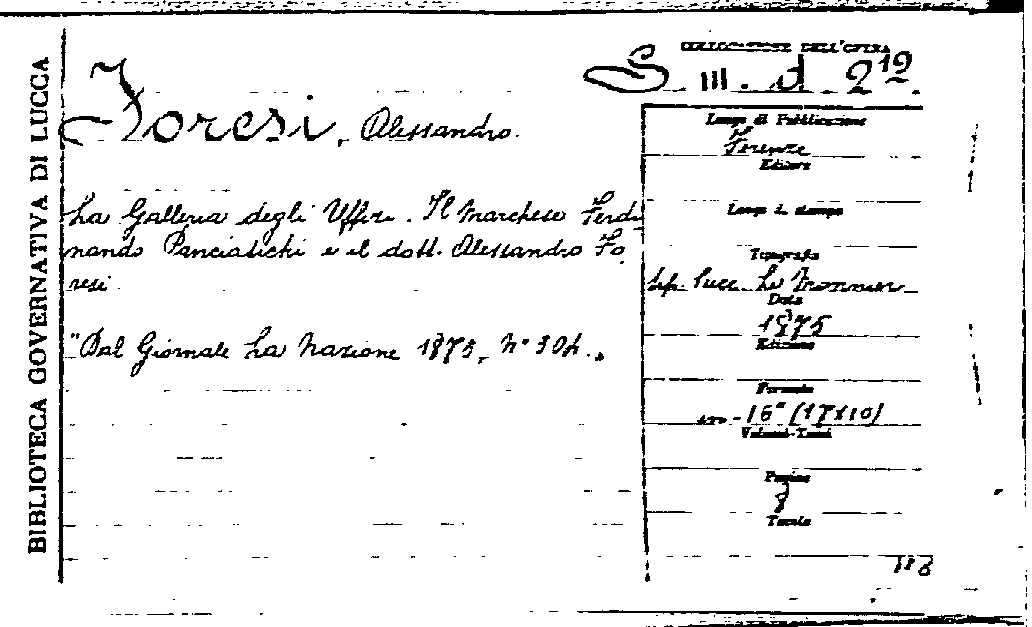 BIBLIOTECA GOVERNATIVA DI LUCCA
COLLOCAZIONE DELL'OPERA
S. III. d. 219.
Foresi, Alessandro.
La Galleria degli Uffizi. Il Marchese Ferdi
nando Panciatichi e il dott. Alessandro Fo
resi
"Dal Giornale La Nazione 1875, N° 304.
Luogo di Pubblicazione
Firenze
Editore
Luogo di stampa
Tipografia
tip. Succ. Le Monnier
Data
1875
Edizione
Formato
16° (17x10)
Volumi-Tomi
Pagine
8
Tavole